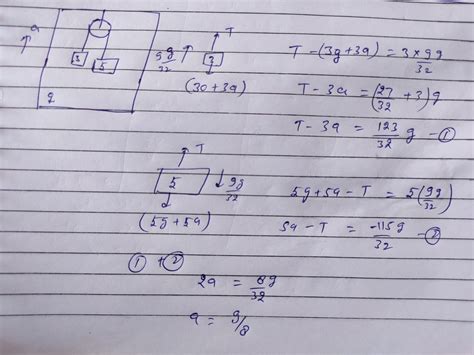 a
3
5
2
9g/32
T
3
(30 + 3a)
T - (3g + 3a) = 3 × 9g/32
T - 3a = (27/32 + 3) g
T - 3a = 123/32 g - ①
T
5
9g/32
(5g + 5a)
5g + 5a - T = 5(9g/32)
5a - T = -115g/32 - ②
① + ②
2a = 8g/32
a = g/8